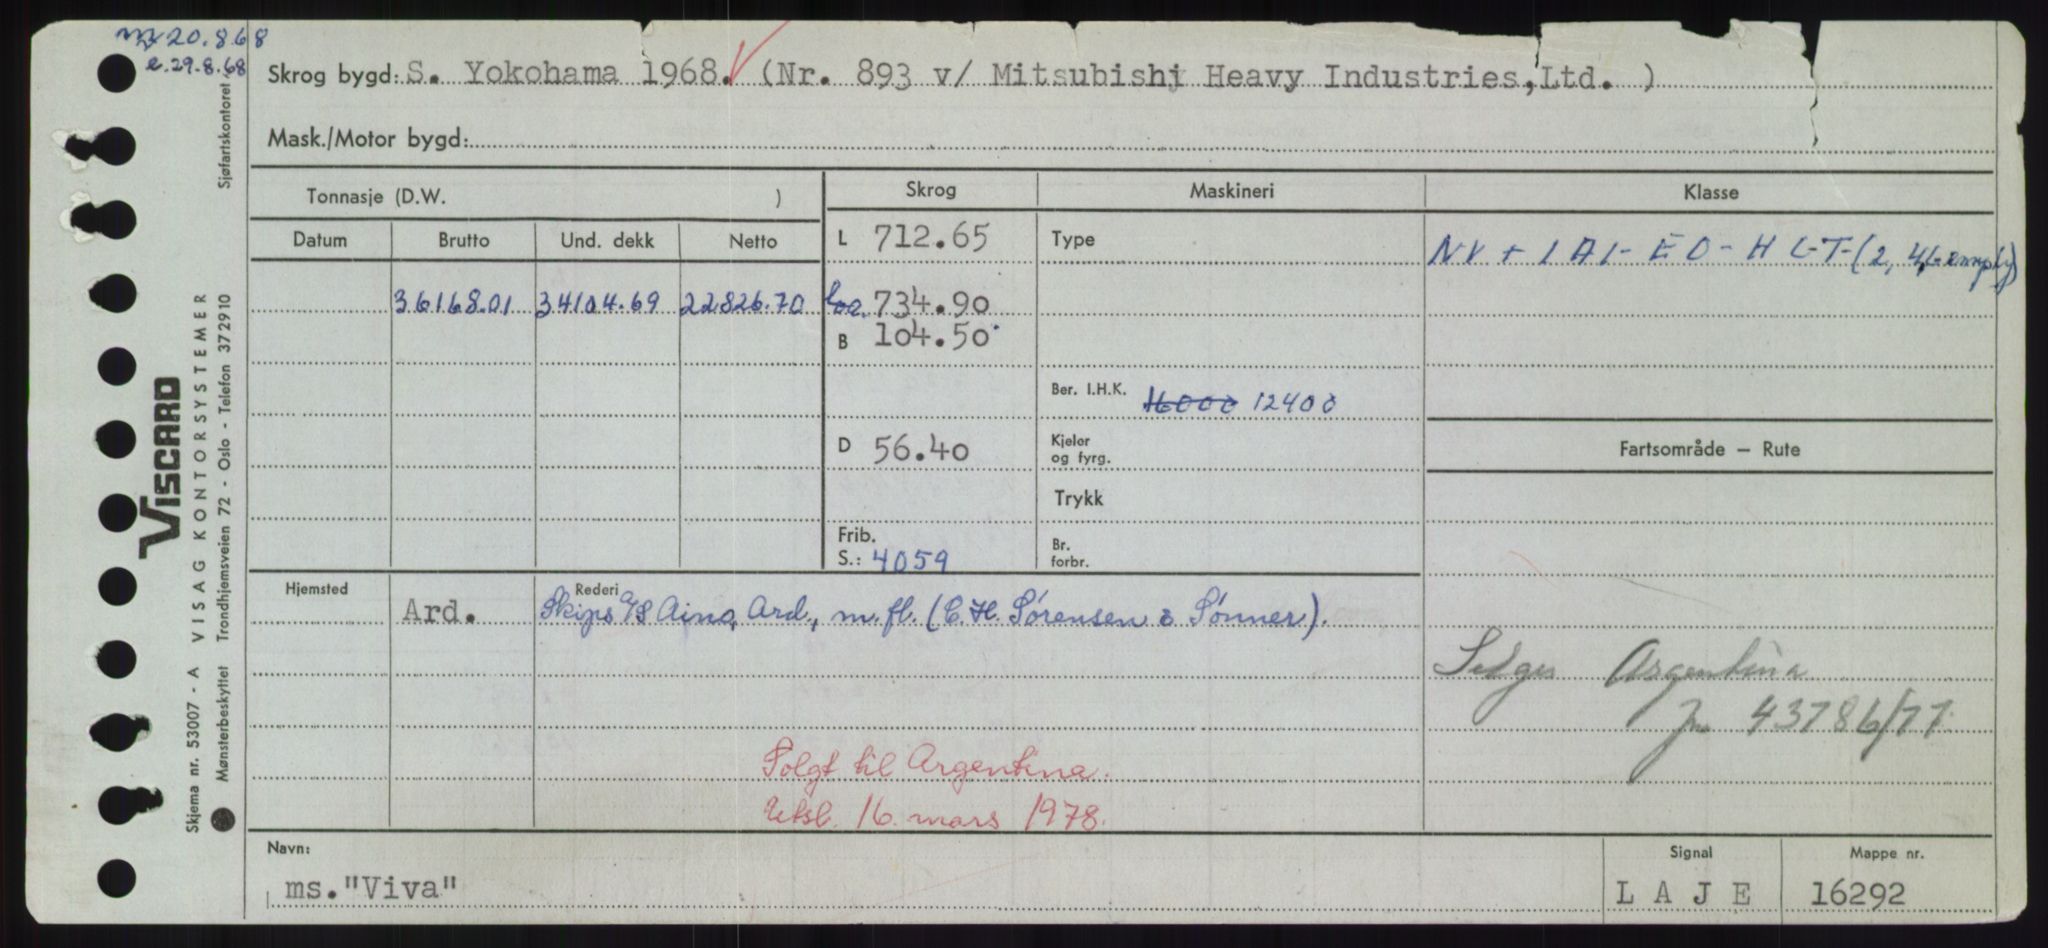 20.8.68
e.29.8.68
Skrog bygd: S. Yokohama 1968. (Nr. 893 v/ Mitsubishi Heavy Industries,Ltd. )
Mask./Motor bygd:
Tonnasje (D.W. )
Skrog Maskineri Klasse
Datum Brutto Und. dekk Netto
L 712.65 Type
NV + 1A1- EO- HLT-(2, 4, 6 empty)
36168.01 34104.69 22826.70 loa. 734.90
B 104.50
Ber. I.H.K. 16000 12400
D 56.40 Kjeler og fyrg.
Fartsområde — Rute
Trykk
Frib. S.: 4059 Br. forbr.
Hjemsted Rederi
Ard. Skips A/S Aino, Ard., m.fl. (C.H. Sørensen & Sønner).
Selges Argentina
43786/77
Solgt til Argentina.
Utsl. 16. mars 1978.
Navn: ms."Viva"
Signal LAJE
Mappe nr. 16292
VISCARD
Skjema nr. 53007 - A VISAG KONTORSYSTEMER
Mønsterbeskyttet Trondhjemsveien 72 - Oslo - Telefon 372910 Sjøfartskontoret